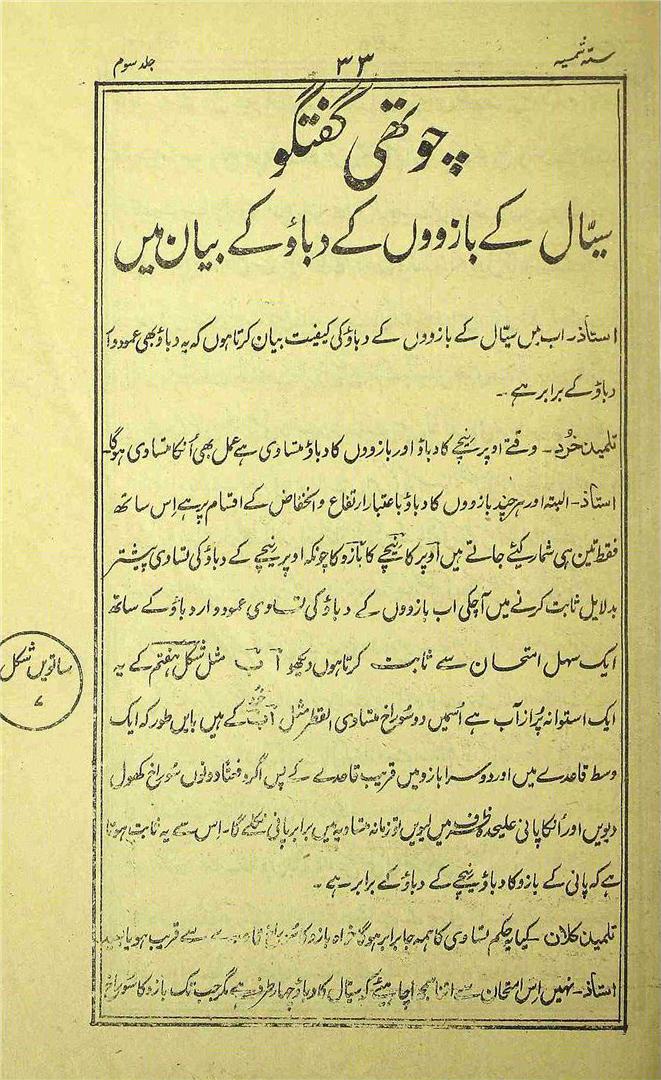 ستہ شمسیہ
۳۳
جلد سوم
چوتھی گفتگو
سیّال کے بازووں کے دباؤ کے بیان میں
استاذ۔ اب میں سیّال کے بازووں کے دباؤ کی کیفیت بیان کرتا ہوں کہ یہ دباؤ بھی عمود وار
دباؤ کے برابر ہے ۔
تلمیذ خُرد۔ وقتے اوپر نیچے کا دباؤ اور بازووں کا دباؤ متساوی ہے عمل بھی اُنکا متساوی ہوگا۔
استاذ۔ البتہ اور ہر چند بازووں کا دباؤ باعتبار ارتفاع و انخفاض کے اقسام پر ہے اِس ساتھ
فقط تین ہی شمار کیئے جاتے ہیں اوپر کا نیچے کا بازو کا چونکہ اوپر نیچے کے دباؤ کی تساوی پیشتر
بدلایل ثابت کرنے میں آچکی اب بازووں کے دباؤ کی تساوی عمود وار دباؤ کے ساتھ
ایک سہل امتحان سے ثابت کرتا ہوں دیکھو آ ب مثل شکل ہفتم کے یہ
ایک استوانہ پُر از آب ہے اُسمیں دو سُوراخ متساوی القطر مثل کے ہیں بایں طور کہ ایک
وسط قاعدے میں اور دوسرا بازو میں قریب قاعدے کے پس اگر دفعتًا دونوں سُوراخ کھول
دیویں اور اُنکا پانی علیحدہ ظرف میں لیویں تو زمانہ متساویہ میں برابر پانی نکلے گا۔ اِس سے یہ ثابت ہوتا
ہے کہ پانی کے بازو کا دباؤ نیچے کے دباؤ کے برابر ہے ۔
تلمیذ کلان کیا یہ حکم تساوی کا ہمہ جا برابر ہوگا خواہ بازو کا سُوراخ قاعدے سے قریب ہو یا بعید
استاذ۔ نہیں اِس امتحان سے اتنا سمجھا چاہیئے کہ سیّال کا دباؤ چہار طرف ہے مگر جب تک بازو کا سُوراخ
ساتویں شکل
۷